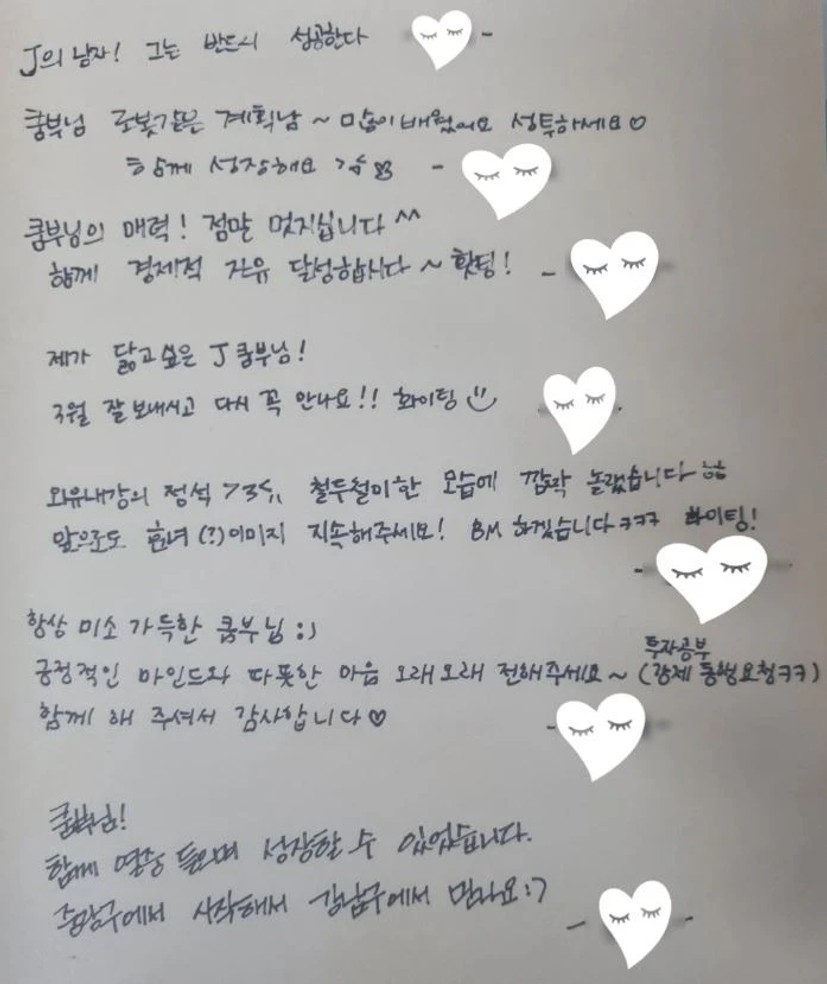 J의 남자! 그는 반드시 성공한다 -
쿵부님 로봇같은 계획남 ~ 많이 배웠어요 성투하세요♡
함께 성장해요 -
쿵부님의 매력! 정말 멋지십니다 ^^
함께 경제적 자유 달성합시다 ~ 홧팅! -
제가 닮고싶은 J쿵부님!
3월 잘 보내시고 다시 꼭 만나요!! 화이팅
외유내강의 정석 >3<,, 철두철미한 모습에 깜짝 놀랐습니다
앞으로도 훈녀(?)이미지 지속해주세요! BM 하겠습니다ㅋㅋㅋ 화이팅!
-
항상 미소 가득한 쿵부님 :)
긍정적인 마인드와 따뜻한 마음 오래오래 전해주세요~ (투자공부 강제 동행요청ㅋㅋ)
함께 해 주셔서 감사합니다♡ -
쿵부님!
함께 열중 들으며 성장할 수 있었습니다.
중랑구에서 시작해서 강남구에서 만나요:)
-